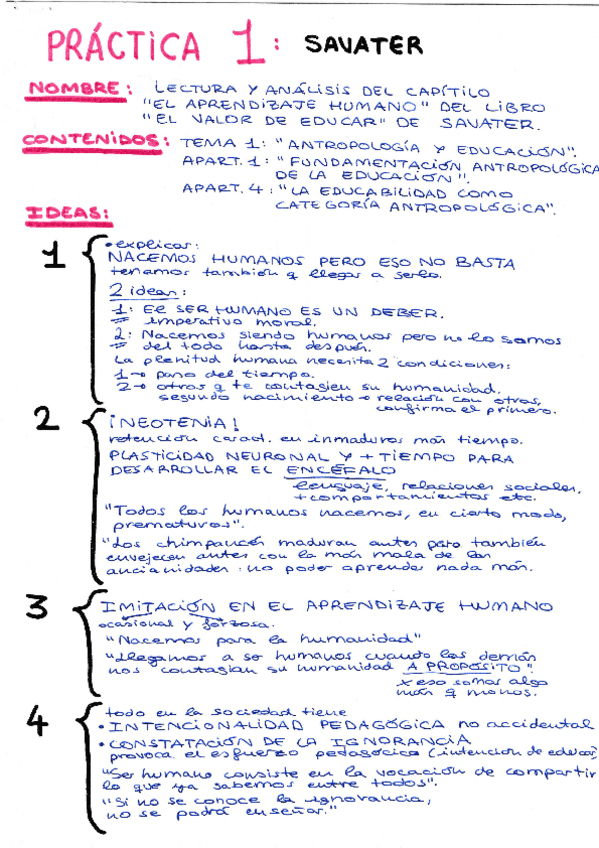 PRÁCTICA 1: SAVATER
NOMBRE: LECTURA Y ANÁLISIS DEL CAPÍTILO
"EL APRENDIZAJE HUMANO" DEL LIBRO
"EL VALOR DE EDUCAR" DE SAVATER.
CONTENIDOS: TEMA 1: "ANTROPOLOGÍA Y EDUCACIÓN".
APART. 1: "FUNDAMENTACIÓN ANTROPOLÓGICA
DE LA EDUCACIÓN".
APART. 4: "LA EDUCABILIDAD COMO
CATEGORÍA ANTROPOLÓGICA".
IDEAS:
1
• explicar:
NACEMOS HUMANOS PERO ESO NO BASTA
tenemos también q llegar a serlo.
2 ideas:
1: El SER HUMANO ES UN DEBER.
imperativo moral.
2: Nacemos siendo humanos pero no lo somos
del todo hasta después.
La plenitud humana necesita 2 condiciones:
1→ paso del tiempo.
2→ otros q te contagien su humanidad.
segundo nacimiento → relación con otros,
confirma el primero.
2
¡NEOTENIA!
retención caract. en inmaduros más tiempo.
PLASTICIDAD NEURONAL Y + TIEMPO PARA
DESARROLLAR EL ENCÉFALO
lenguaje, relaciones sociales,
+ comportamientos etc.
"Todos los humanos nacemos, en cierto modo,
prematuros".
"Los chimpancés maduran antes pero también
envejecen antes con la más mala de las
ancianidades: no poder aprender nada más.
3
IMITACIÓN EN EL APRENDIZAJE HUMANO
ocasional y forzosa.
"Nacemos para la humanidad"
"Llegamos a ser humanos cuando los demás
nos contagian su humanidad A PROPÓSITO"
x eso somos algo
más q monos.
4
todo en la sociedad tiene
• INTENCIONALIDAD PEDAGÓGICA no accidental
• CONSTATACIÓN DE LA IGNORANCIA
provoca el esfuerzo pedagógico (intención de educar)
"Ser humano consiste en la vocación de compartir
lo que ya sabemos entre todos".
"Si no se conoce la ignorancia,
no se podrá enseñar."